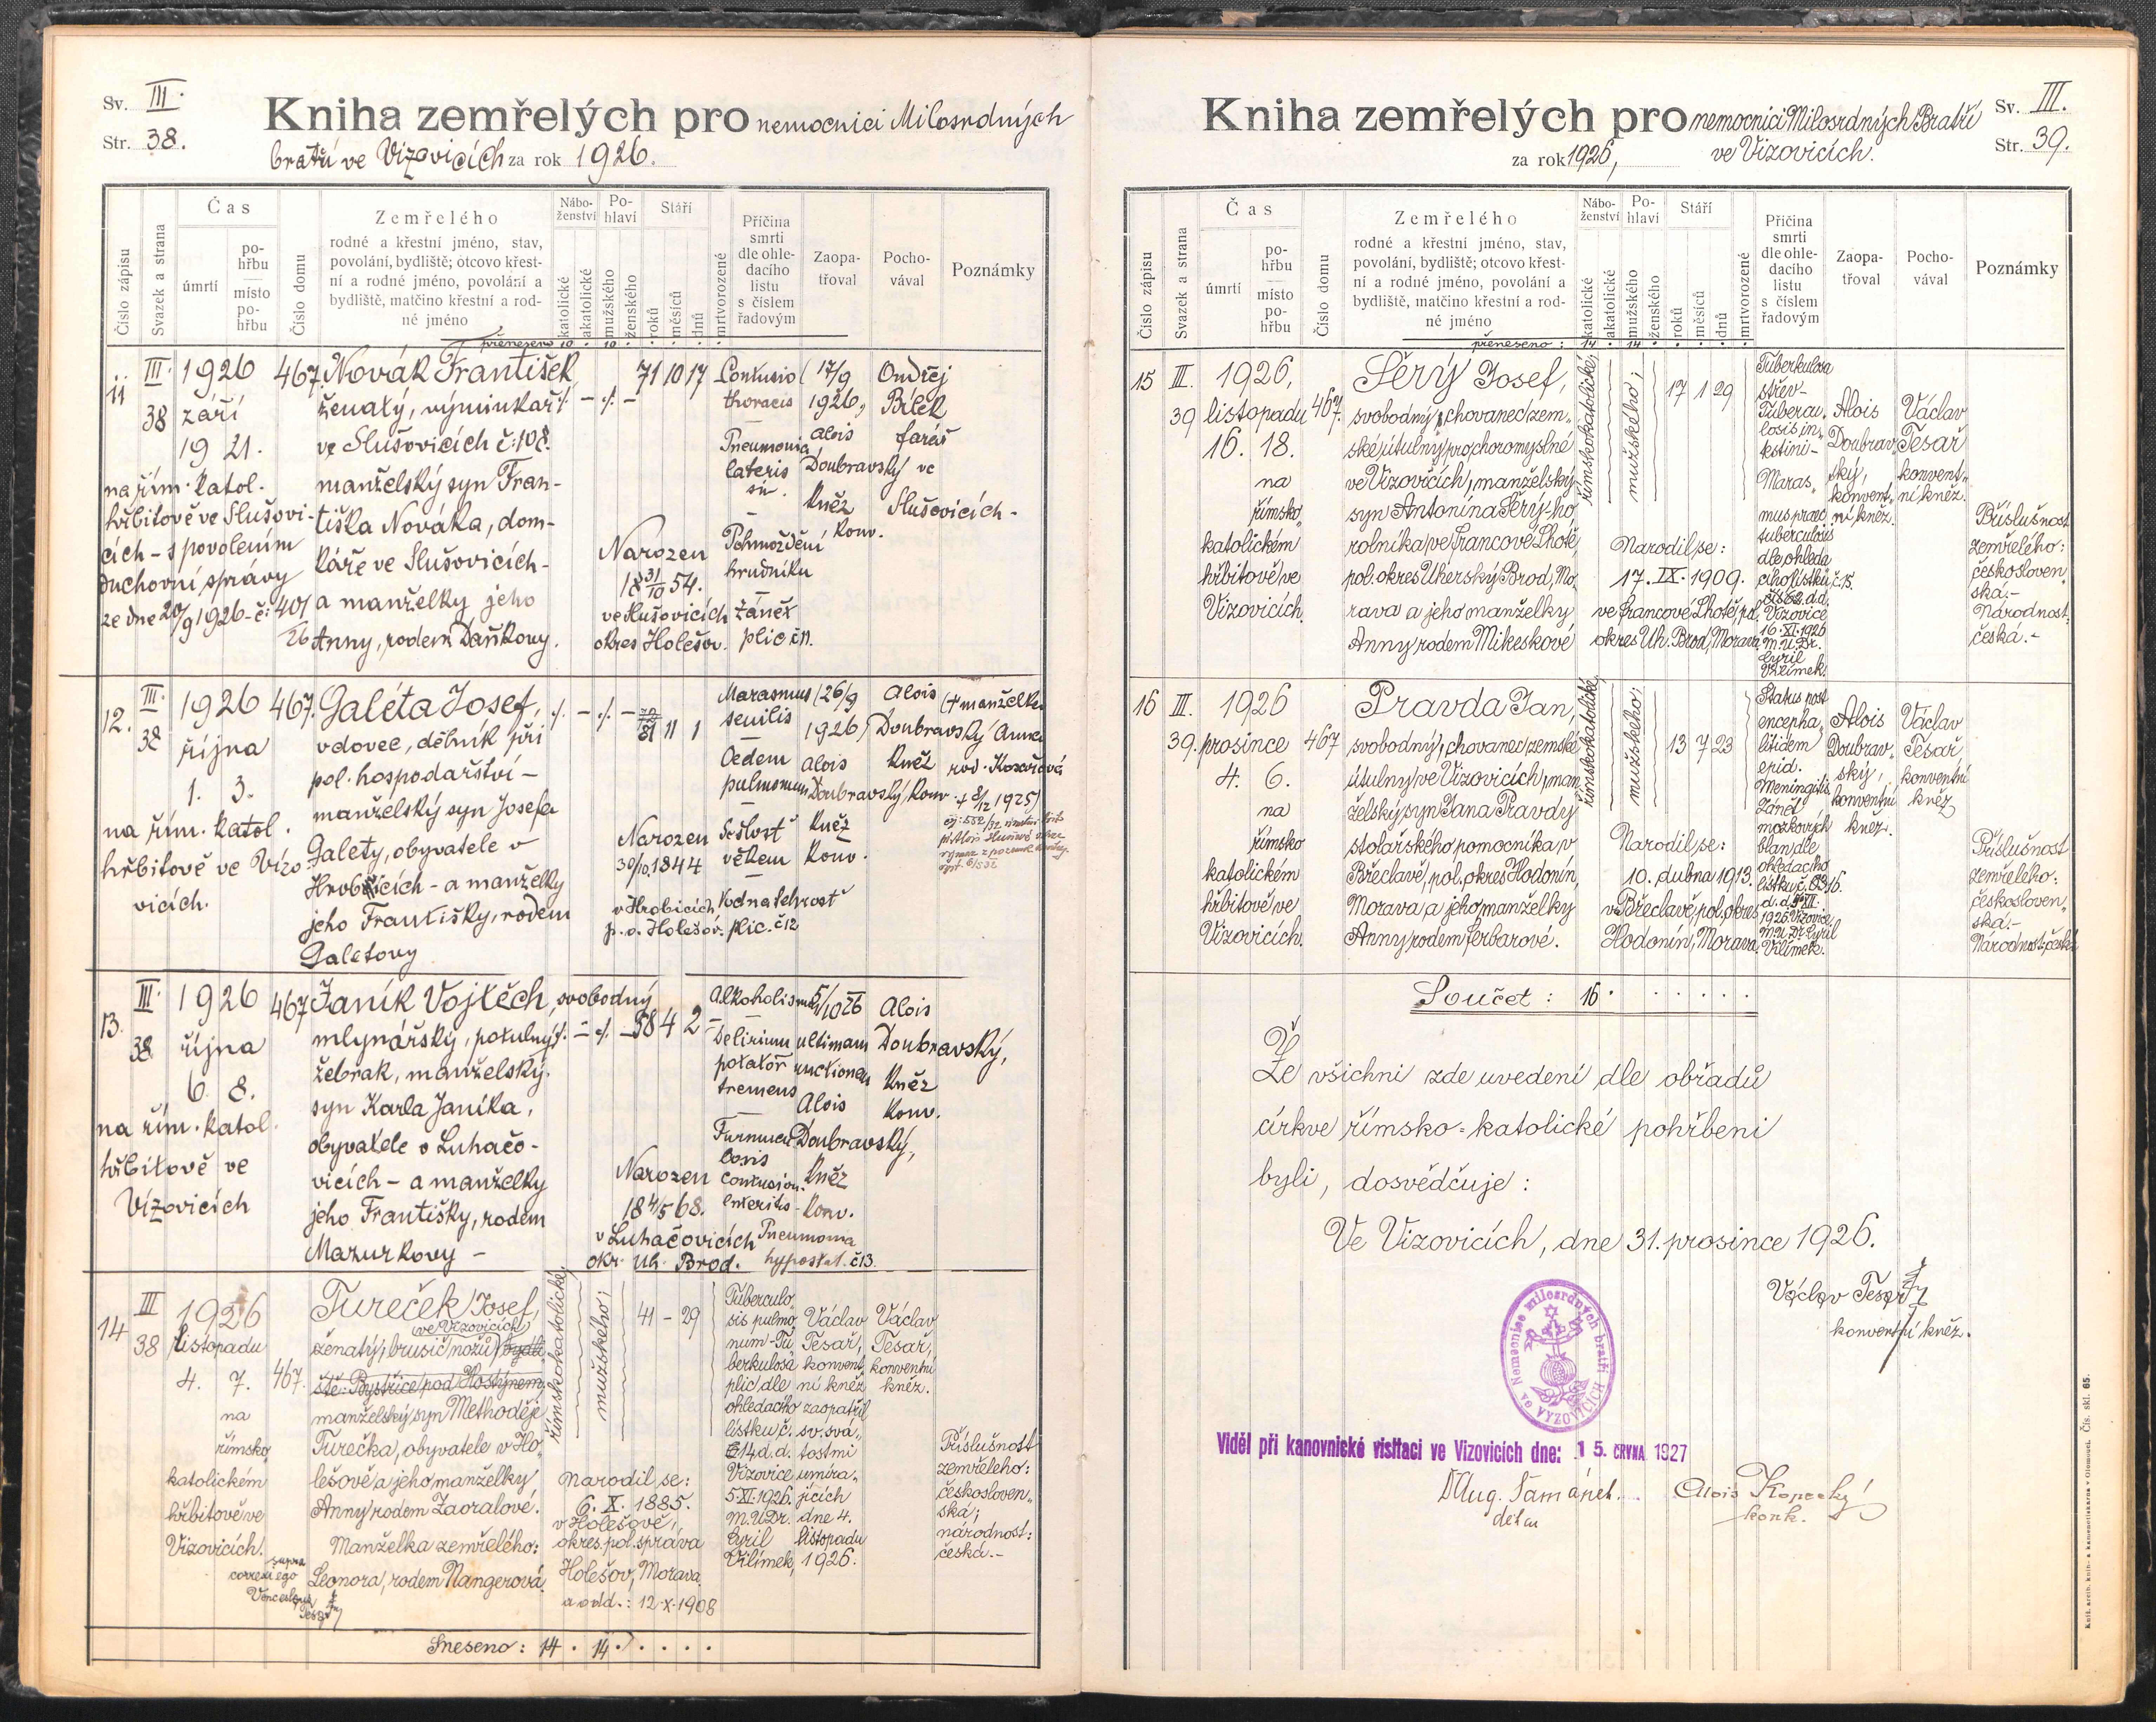 Sv. III.
Str. 38.
Kniha zemřelých pro nemocnici Milosrdných
bratří ve Vizovicích za rok 1926.
Číslo zápisu
Svazek a strana
Čas
úmrtí
po-
hřbu
místo
po-
hřbu
Číslo domu
Zemřelého
rodné a křestní jméno, stav,
povolání, bydliště; otcovo křest-
ní a rodné jméno, povolání a
bydliště, matčino křestní a rod-
né jméno
Nábo-
ženství
katolické
akatolické
Po-
hlaví
mužského
ženského
Stáří
roků
měsíců
dnů
mrtvorozené
Příčina
smrti
dle ohle-
dacího
listu
s číslem
řadovým
Zaopa-
třoval
Pocho-
vával
Poznámky
přeneseno 10 . 10 . . . .
11
III.
38
1926
září
19 21.
na řím. katol.
hřbitově ve Slušovi-
cích - s povolením
duchovní správy
ze dne 20/9 1926 - č: 401
26
467.
Novák František
ženatý, výminkář
ve Slušovicích č: 108.
manželský syn Fran-
tiška Nováka, dom-
káře ve Slušovicích -
a manželky jeho
Anny, rodem Daňkovy.
71 10 17
Narozen
18 31/10 54.
ve Slušovicích
okres Holešov.
Contusio
thoracis
Pneumonia
lateris
sin.
Pohmoždění
hrudníku
zánět
plic č 11.
17/9
1926,
Alois
Doubravský
kněz
konv.
Ondřej
Bílek
farář
ve
Slušovicích -
12.
III.
38
1926
října
1. 3.
na řím. katol.
hřbitově ve Vizo-
vicích.
467.
Galéta Josef,
vdovec, dělník při
pol. hospodářství -
manželský syn Josefa
Galety, obyvatele v
Hrobicích - a manželky
jeho Františky, rodem
Galetovy
81 11 1
Narozen
30/10 1844
v Hrobicích
p. o. Holešov.
Marasmus
senilis
Oedem
pulmonum
Sešlost
věkem
Vodnatelnost
plic. č 12
26/9
1926
Alois
Doubravský
kněz
konv.
Alois
Doubravský
kněz
konv.
(+ manželka
Anna
rod.
+ 8/12 1925)
13.
III.
38
1926
října
6. 8.
na řím. katol.
hřbitově ve
Vizovicích
467
Janík Vojtěch, svobodný
mlynářský, potulný
žebrák, manželský
syn Karla Janíka,
obyvatele v Luhačo-
vicích - a manželky
jeho Františky, rodem
Mazurkovy -
58 4 2
Narozen
18 4/5 68.
v Luhačovicích
okr. Uh. Brod.
Alkoholismus
Delirium
potator
tremens
Furnucu
losis
contusion.
enteritis -
Pneumonia
hypostat. č 13.
5/10 26
ultimam
unctionem
Alois
Doubravský,
kněz
konv.
Alois
Doubravský,
kněz
konv.
14
III
38
1926
listopadu
4. 7.
na
římsko
katolickém
hřbitově ve
Vizovicích.
467.
Tureček Josef,
(ve Vizovicích)
ženatý, brusič nožů bydli
ště: Bystřice pod Hostýnem,
manželský syn Methoděje
Turečka, obyvatele v Ho-
lešově a jeho manželky
Anny rodem Zaoralové.
Manželka zemřelého:
Leonora, rodem Nangerová.
supra
correxi ego
Venceslaus
Tesař
římskokatolické,
mužského;
41 - 29
Narodil se:
6. X. 1885.
v Holešově,
okres. pol. správa
Holešov, Morava.
a odd.: 12.X.1908
Tuberculo-
sis pulmo-
num - Tu-
berkulosa
plic dle
ohledacího
lístku č.
14 d.d.
Vizovice
5.XI.1926.
M.U.Dr.
Cyril
Vilímek,
Václav
Tesař,
konvent-
ní kněz
zaopatřil
sv. svá-
tostmi
umíra-
jících
dne 4.
listopadu
1926.
Václav
Tesař,
konventní
kněz.
Příslušnost
zemřelého:
českosloven-
ská;
národnost:
česká. -
Sneseno: 14 . 14. . . . .
Kniha zemřelých pro nemocnici Milosrdných Bratří
za rok 1926, ve Vizovicích.
Sv. III.
Str. 39.
Číslo zápisu
Svazek a strana
Čas
úmrtí
po-
hřbu
místo
po-
hřbu
Číslo domu
Zemřelého
rodné a křestní jméno, stav,
povolání, bydliště; otcovo křest-
ní a rodné jméno, povolání a
bydliště, matčino křestní a rod-
né jméno
Nábo-
ženství
katolické
akatolické
Po-
hlaví
mužského
ženského
Stáří
roků
měsíců
dnů
mrtvorozené
Příčina
smrti
dle ohle-
dacího
listu
s číslem
řadovým
Zaopa-
třoval
Pocho-
vával
Poznámky
přeneseno: 14 . 14 . . . .
15
III.
39
1926,
listopadu
16. 18.
na
římsko
katolickém
hřbitově ve
Vizovicích.
467.
Šerý Josef,
svobodný, chovanec zem-
ské útulny pro choromyslné
ve Vizovicích, manželský
syn Antonína Šerý-ho
rolníka ve Francově Lhotě,
pol. okres Uherský Brod, Mo-
rava a jeho manželky
Anny rodem Mikeskové
římskokatolické,
mužského;
17 1 29
Narodil se:
17. IX. 1909.
ve Francově Lhotě, pol.
okres Uh. Brod, Morava.
Tuberkulosa
střev -
Tubercu-
losis in-
testini -
Maras-
mus praec
tuberculosis
dle ohleda
cího lístku č. 15.
d.d.
Vizovice
16.XI.1926
M.U.Dr.
Cyril
Vilímek.
Alois
Doubrav-
ský,
konvent-
ní kněz.
Václav
Tesař
konvent-
ní kněz.
Příslušnost
zemřelého:
českosloven-
ská. -
Národnost:
česká. -
16
III.
39.
1926
prosince
4. 6.
na
římsko
katolickém
hřbitově ve
Vizovicích.
467
Pravda Jan,
svobodný, chovanec zemské
útulny ve Vizovicích, man-
želský syn Jana Pravdy
stolařského pomocníka, v
Břeclavě, pol. okres Hodonín,
Morava, a jeho manželky
Anny rodem Ferbarové.
římskokatolické,
mužského;
13 7 23
Narodil se:
10. dubna 1913.
v Břeclavě, pol. okres
Hodonín, Morava.
Status post
encepha-
litidem
epid.
Meningitis
Zánět
mozkových
blan dle
ohledacího
lístku č. 16.
d.d. XII.
1926. Vizovice
M.U.Dr. Cyril
Vilímek.
Alois
Doubrav-
ský,
konventní
kněz.
Václav
Tesař
konventní
kněz
Příslušnost
zemřelého:
českosloven-
ská. -
Národnost: česká
Součet: 16 . . . . . . .
Že všichni zde uvedení dle obřadů
církve římsko-katolické pohřbeni
byli, dosvědčuje:
Ve Vizovicích, dne 31. prosince 1926.
Václav Tesař
konventní kněz.
Nemocnice milosrdných bratří
ve VYZOVICÍCH
Viděl při kanovnické visitaci ve Vizovicích dne: 15. ČRVNA 1927
Aug. Tamánek.
děkan
Alois Konečný
konk.
Knih. arcib. knih- a kamenotiskárna v Olomouci. Čís. skl. 65.